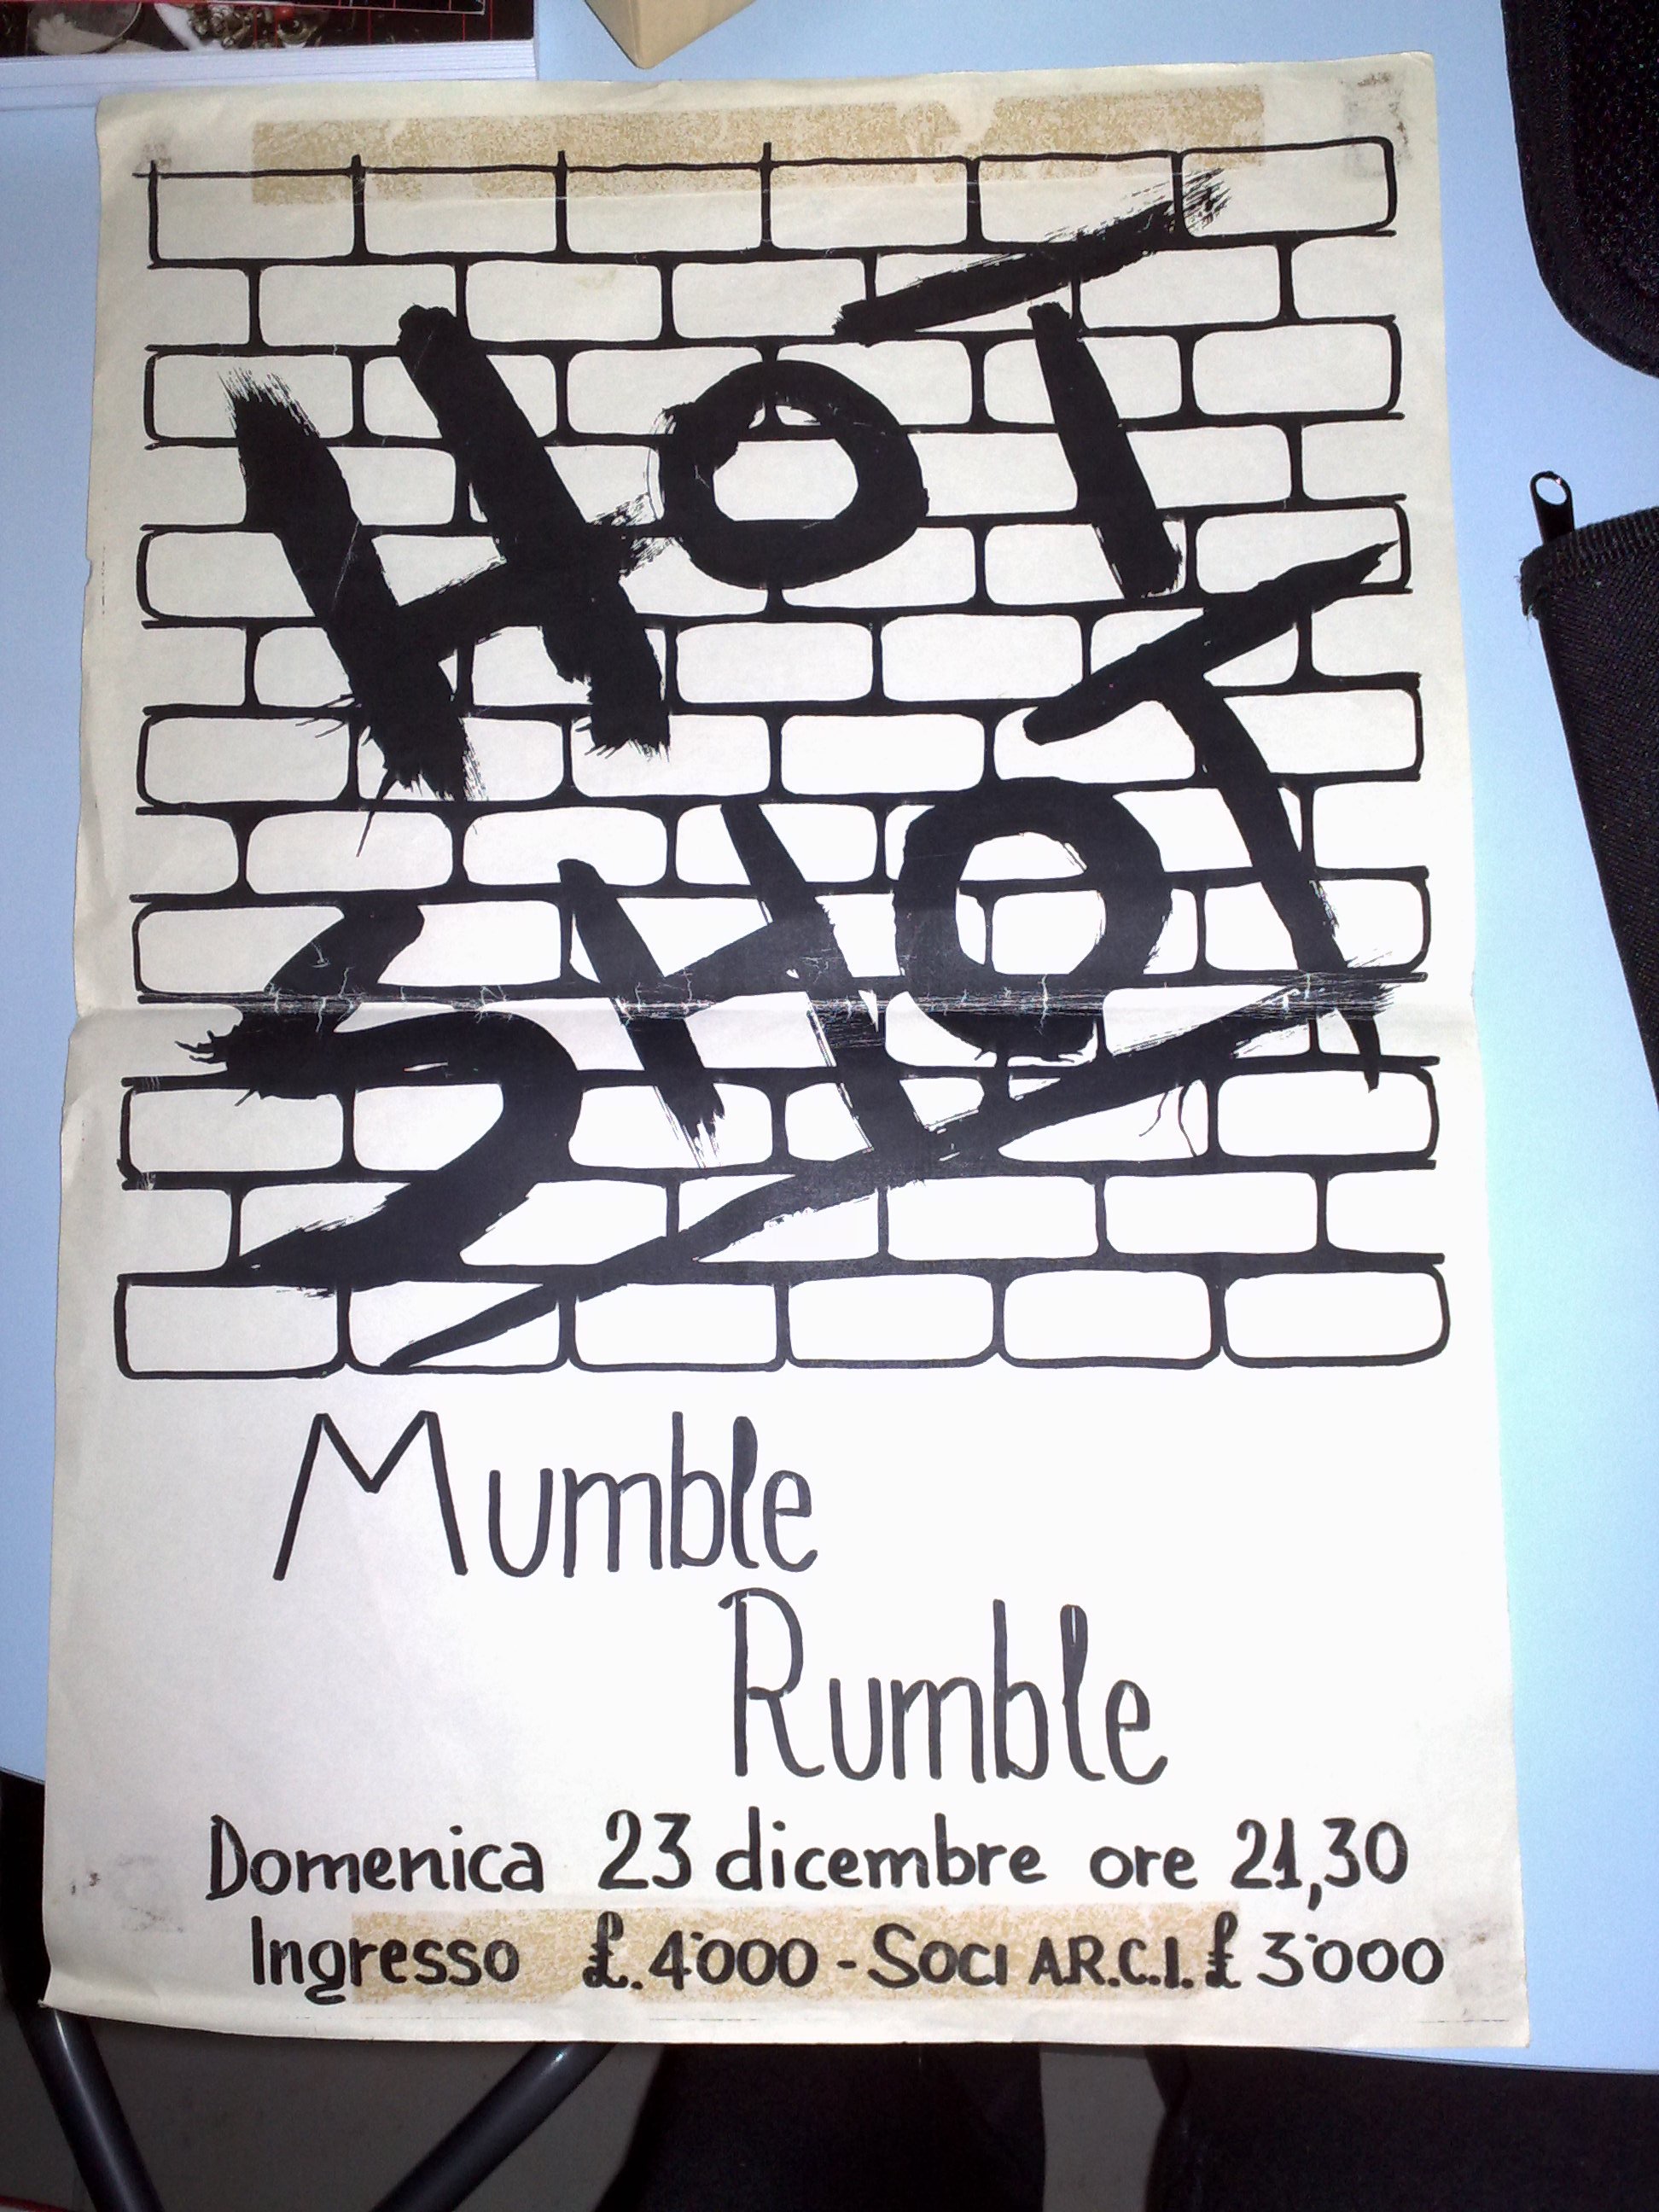 HOT
SHOT
Mumble
Rumble
Domenica 23 dicembre ore 21,30
Ingresso £. 4'000 - Soci A.R.C.I. £ 3'000